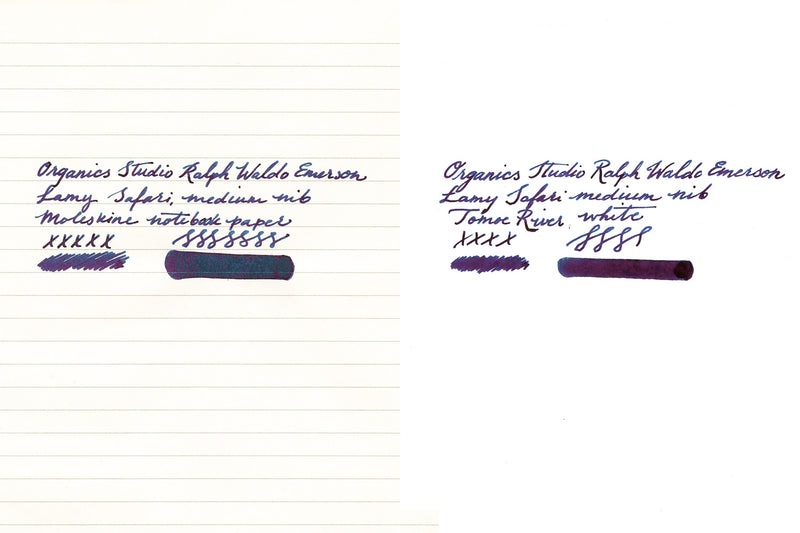 Organics Studio Ralph Waldo Emerson
Lamy Safari, medium nib
Moleskine notebook paper
xxxxx SSSSSSS
Organics Studio Ralph Waldo Emerson
Lamy Safari medium nib
Tomoe River, white
xxxx SSSS